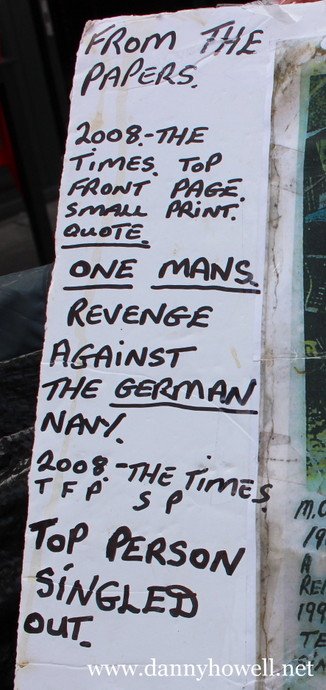 FROM THE
PAPERS.
2008.-THE
TIMES. TOP
FRONT PAGE.
SMALL PRINT.
QUOTE.
ONE MANS.
REVENGE
AGAINST
THE GERMAN
NAVY.
2008.-THE TIMES.
T F P S P
TOP PERSON
SINGLED
OUT.
A
www.dannyhowell.net